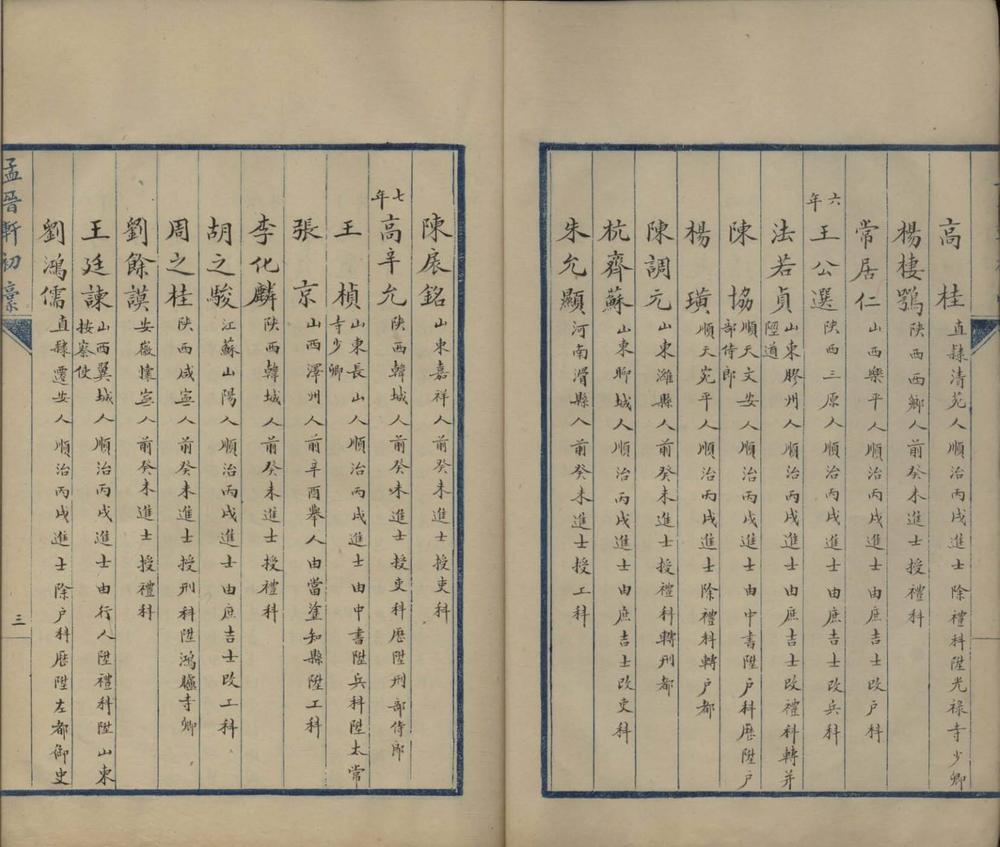 高桂直隸清苑人順治丙戌進士除禮科陞光祿寺少卿
楊棲鶚陝西西鄉人前癸未進士授禮科
常居仁山西樂平人順治丙戌進士由庶吉士改戶科
六年
王公選陝西三原人順治丙戌進士由庶吉士改兵科
法若貞山東膠州人順治丙戌進士由庶吉士改禮科轉井
陘道
陳協順天文安人順治丙戌進士由中書陞戶科歷陞戶
部侍郎
楊璜順天宛平人順治丙戌進士除禮科轉戶都
陳調元山東濰縣人前癸未進士授禮科轉刑都
杭齊蘇山東聊城人順治丙戌進士由庶吉士改吏科
朱允顯河南滑縣人前癸未進士授工科
陳展銘山東嘉祥人前癸未進士授吏科
七年
高辛允陝西韓城人前癸未進士授吏科歷陞刑部侍郎
王楨山東長山人順治丙戌進士由中書陞兵科陞太常
寺少卿
張京山西澤州人前辛酉舉人由當塗知縣陞工科
李化麟陝西韓城人前癸未進士授禮科
胡之駿江蘇山陽人順治丙戌進士由庶吉士改工科
周之桂陝西咸寧人前癸未進士授刑科陞鴻臚寺卿
劉餘謨安徽懷寧人前癸未進士授禮科
王廷諫山西翼城人順治丙戌進士由行人陞禮科陞山東
按察使
劉鴻儒直隸遷安人順治丙戌進士除戶科歷陞左都御史
孟晉軒初稾
三